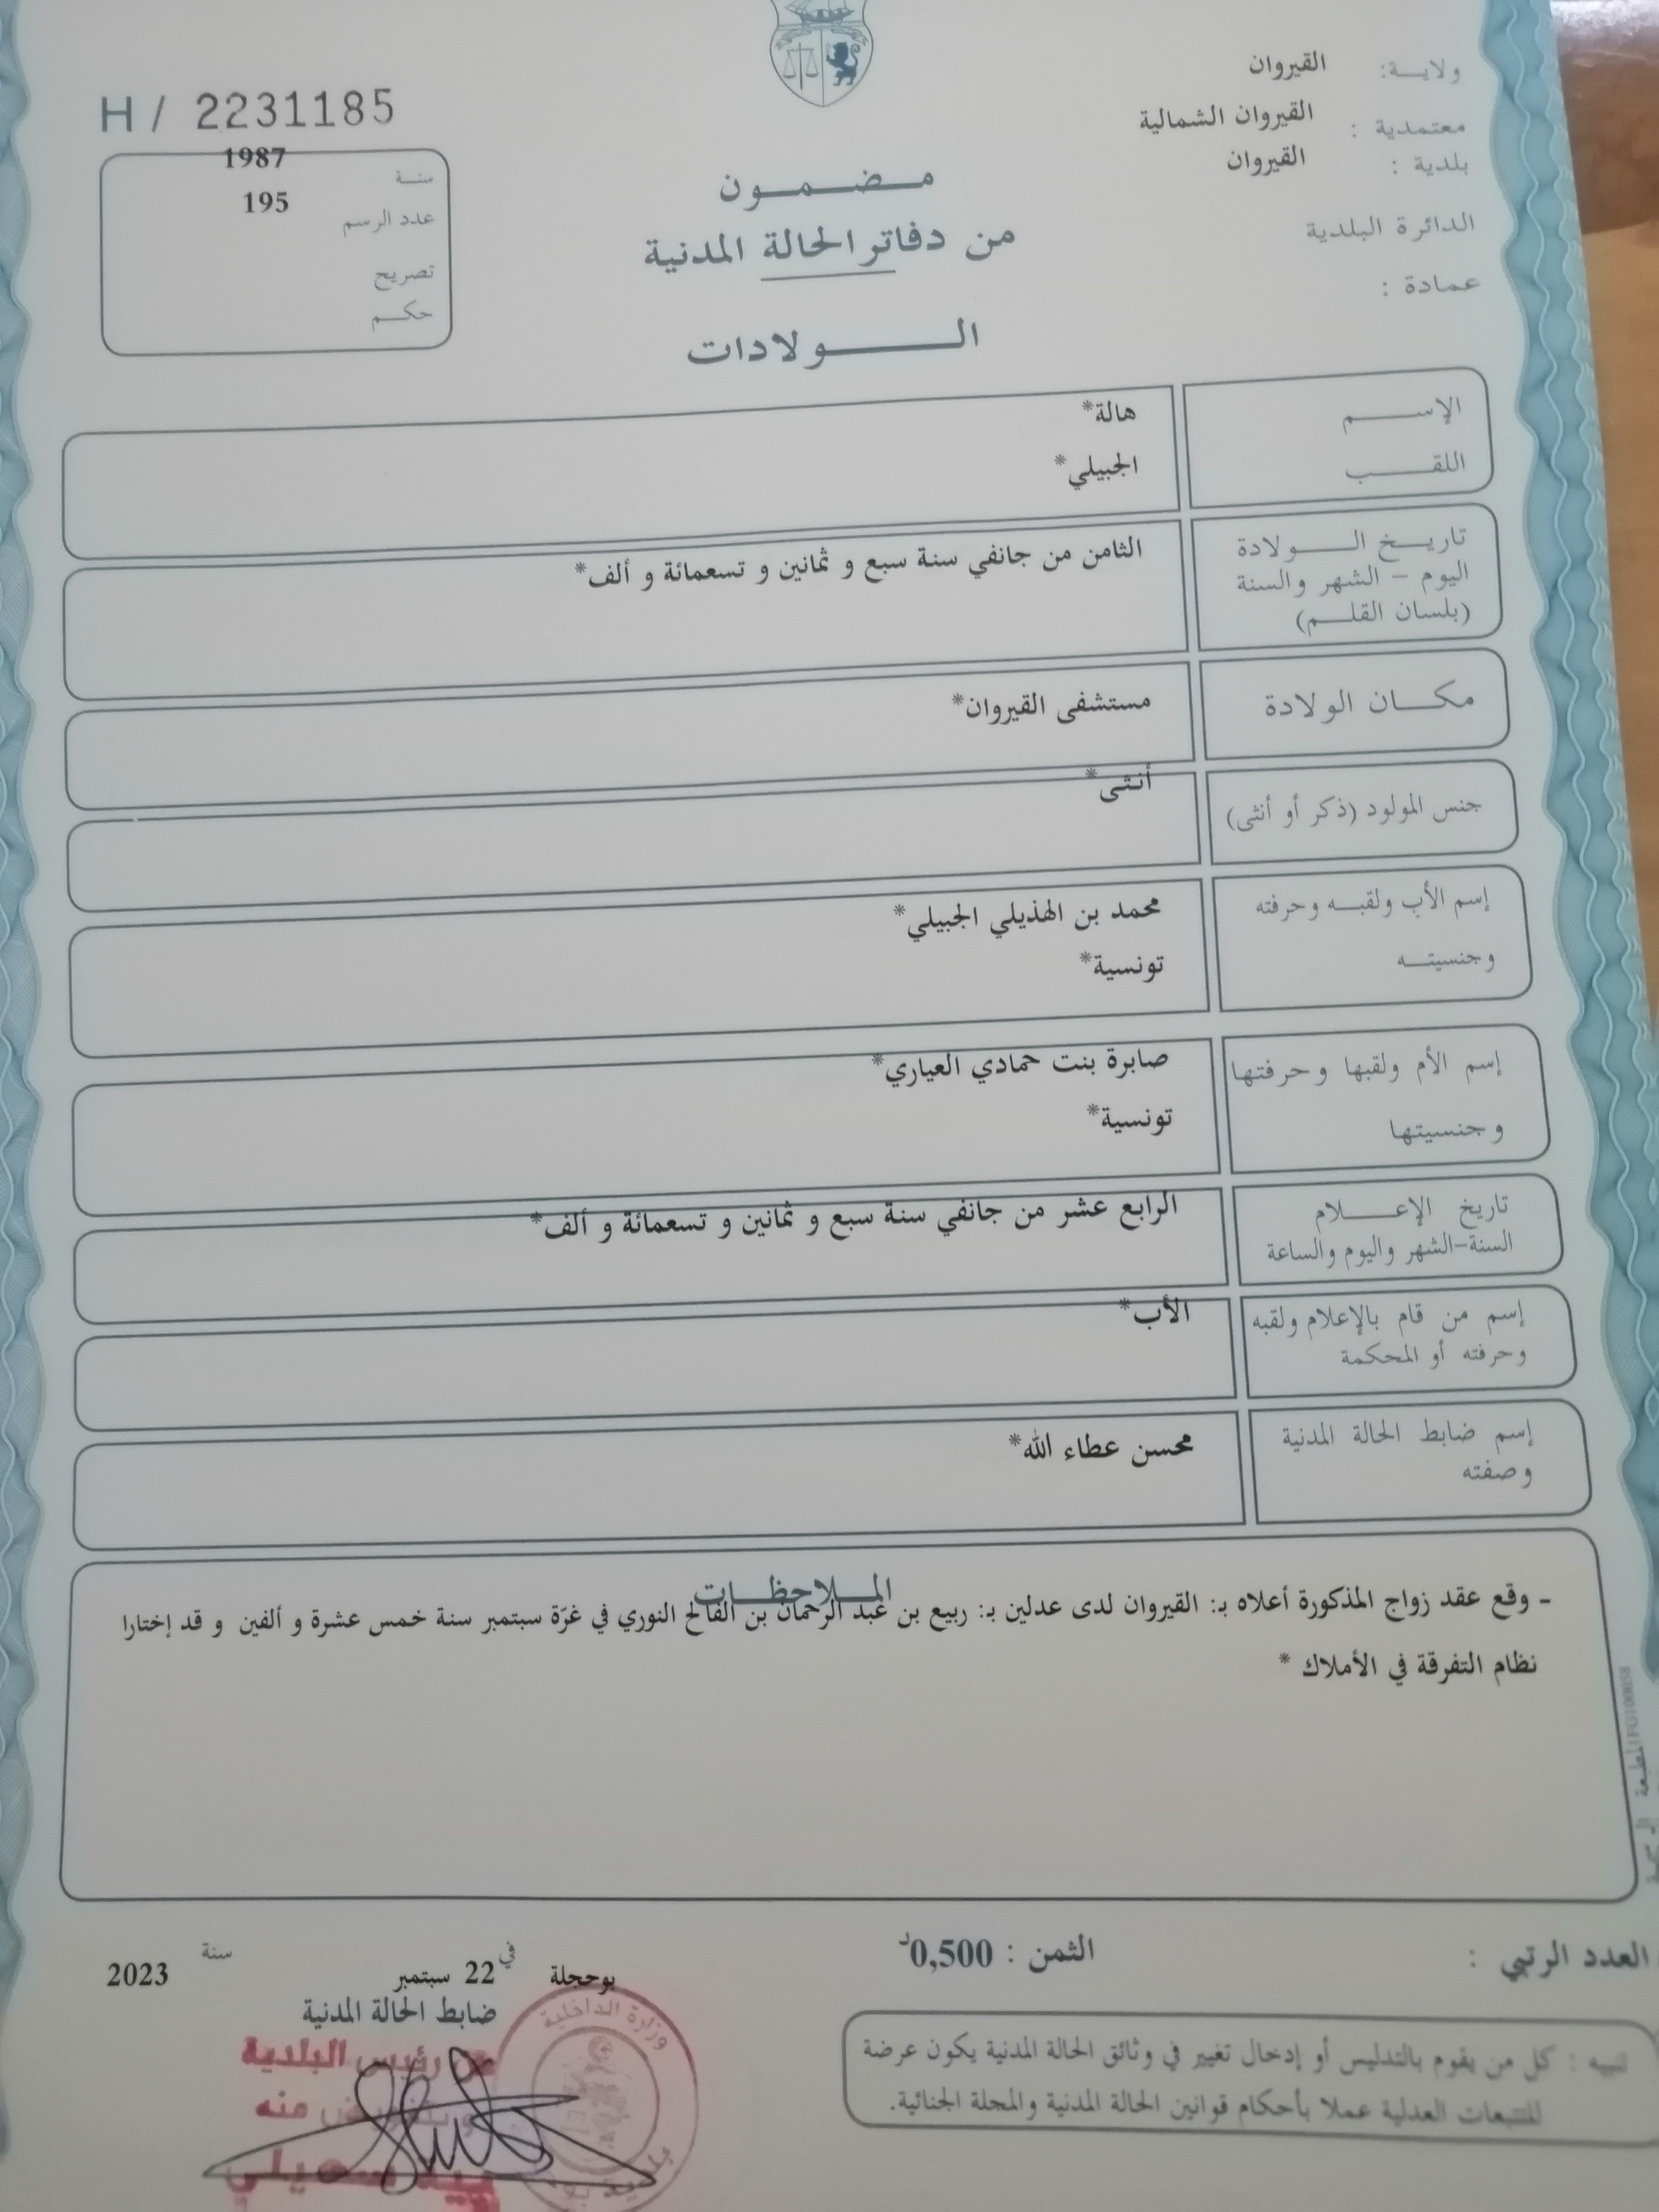 ولايــة: القيروان
معتمدية : القيروان الشمالية
بلدية : القيروان
الدائرة البلدية
عمادة :
H / 2231185
سنة 1987
عدد الرسم 195
تصريح
حكم
مضمون
من دفاتر الحالة المدنية
الولادات
الإسم هالة*
اللقب الجبيلي*
تاريخ الولادة
اليوم - الشهر والسنة
(بلسان القلم)
الثامن من جانفي سنة سبع و ثمانين و تسعمائة و ألف*
مكان الولادة مستشفى القيروان*
جنس المولود (ذكر أو أنثى) أنثى*
إسم الأب ولقبه وحرفته محمد بن الهذيلي الجبيلي*
وجنسيته تونسية*
إسم الأم ولقبها وحرفتها صابرة بنت حمادي العياري*
وجنسيتها تونسية*
تاريخ الإعلام
السنة-الشهر واليوم والساعة
الرابع عشر من جانفي سنة سبع و ثمانين و تسعمائة و ألف*
إسم من قام بالإعلام ولقبه
وحرفته أو المحكمة
الأب*
إسم ضابط الحالة المدنية
وصفته
محسن عطاء الله*
الملاحظات
- وقع عقد زواج المذكورة أعلاه بـ: القيروان لدى عدلين بـ: ربيع بن عبد الرحمان بن الفالح النوري في غرّة سبتمبر سنة خمس عشرة و ألفين و قد إختارا
نظام التفرقة في الأملاك *
العدد الرتبي :
الثمن : 0,500د
بوحجلة في 22 سبتمبر سنة 2023
ضابط الحالة المدنية
عن رئيس البلدية
منه
وزارة الداخلية
تنبيه : كل من يقوم بالتدليس أو إدخال تغيير في وثائق الحالة المدنية يكون عرضة
للتتبعات العدلية عملا بأحكام قوانين الحالة المدنية والمجلة الجنائية.